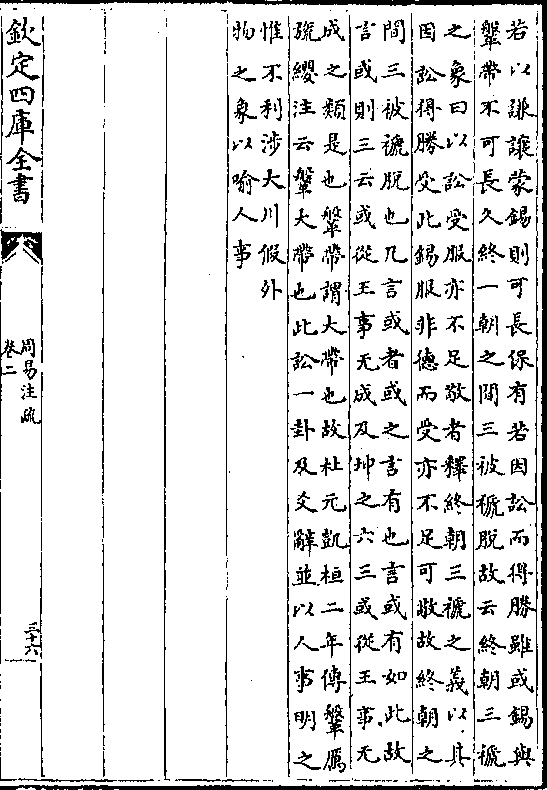 若以謙讓蒙錫則可長保有若因訟而得勝雖或錫與
鞶帶不可長久終一朝之間三被褫脫故云終朝三褫
之象曰以訟受服亦不足敬者釋終朝三褫之義以其
因訟得勝受此錫服非德而受亦不足可敬故終朝之
間三被褫脫也凡言或者或之言有也言或有如此故
言或則三云或從王事无成及坤之六三或從王事无
成之類是也鞶帶謂大帶也故杜元凱桓二年傳鞶厲
旒纓注云鞶大帶也此訟一卦及爻辭並以人事明之
惟不利涉大川假外
物之象以喻人事
欽定四庫全書
周易注疏
卷二
三十六